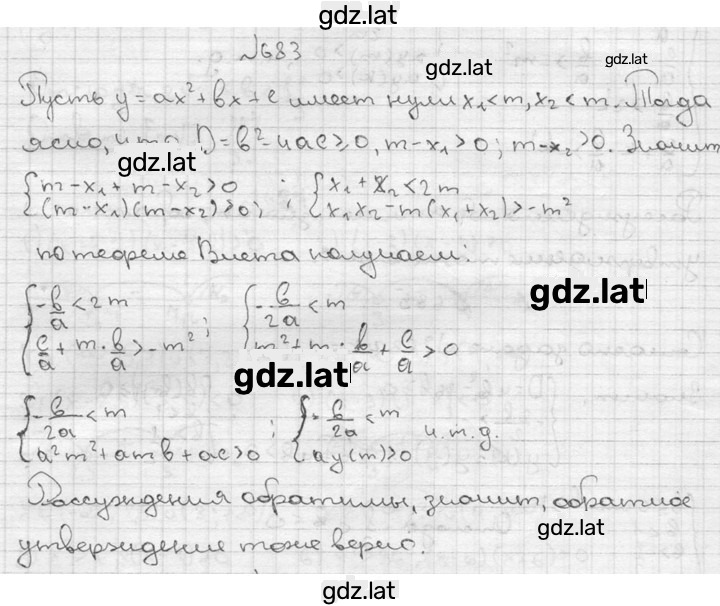 gdz.lat
№683
gdz.lat
gdz.lat
Пусть y = ax² + bx + c имеет нули x₁ < m, x₂ < m. Тогда
ясно, что D = b² - 4ac ≥ 0, m - x₁ > 0; m - x₂ > 0. Значит
gdz.lat
{ m - x₁ + m - x₂ > 0 ; { x₁ + x₂ < 2m
{ (m - x₁)(m - x₂) > 0; { x₁x₂ - m(x₁ + x₂) > -m²
по теореме Виета получаем:
gdz.lat
{ -b/a < 2m ; { -b/2a < m
{ c/a + m · b/a > -m² { m² + m · b/a + c/a > 0
gdz.lat
{ -b/2a < m ; { -b/2a < m
{ a²m² + amb + ac > 0 { ay(m) > 0 ч.т.д.
Рассуждения обратимы, значит, обратное
gdz.lat
утверждение тоже верно.
gdz.lat